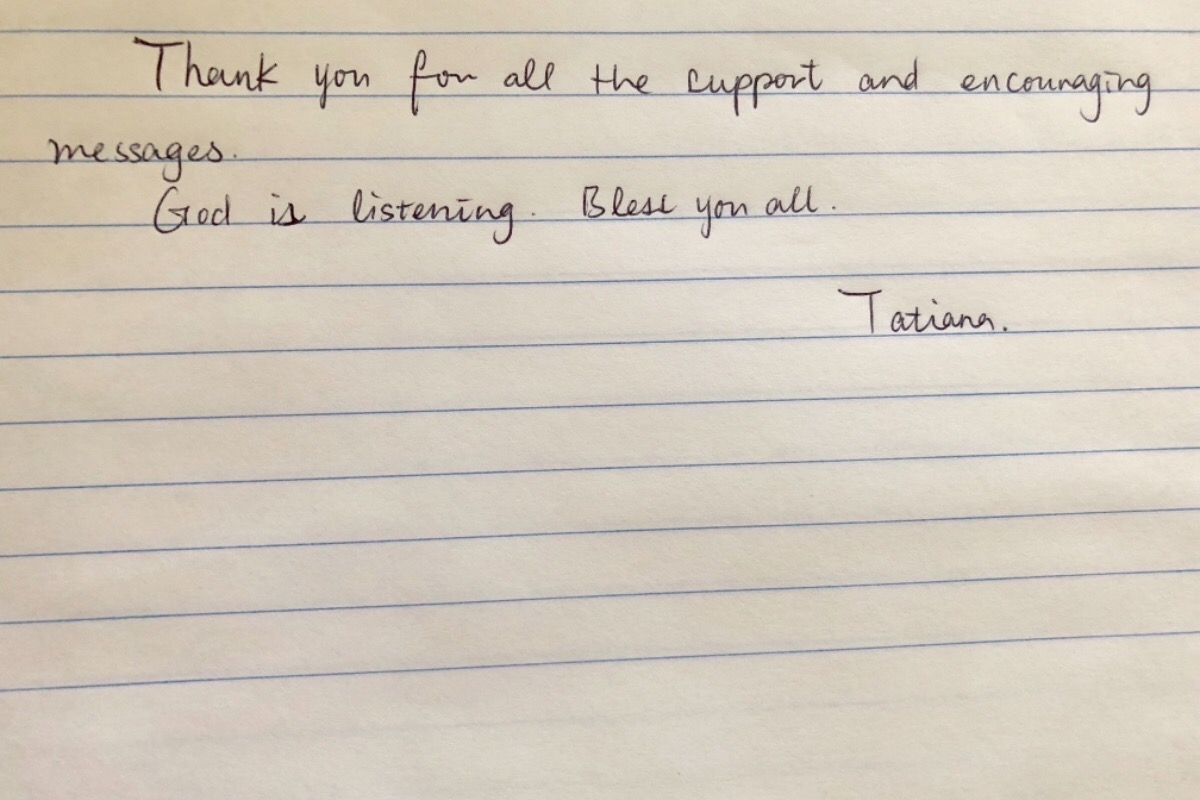 Thank you for all the support and encouraging
messages.
God is listening. Bless you all.
Tatiana.